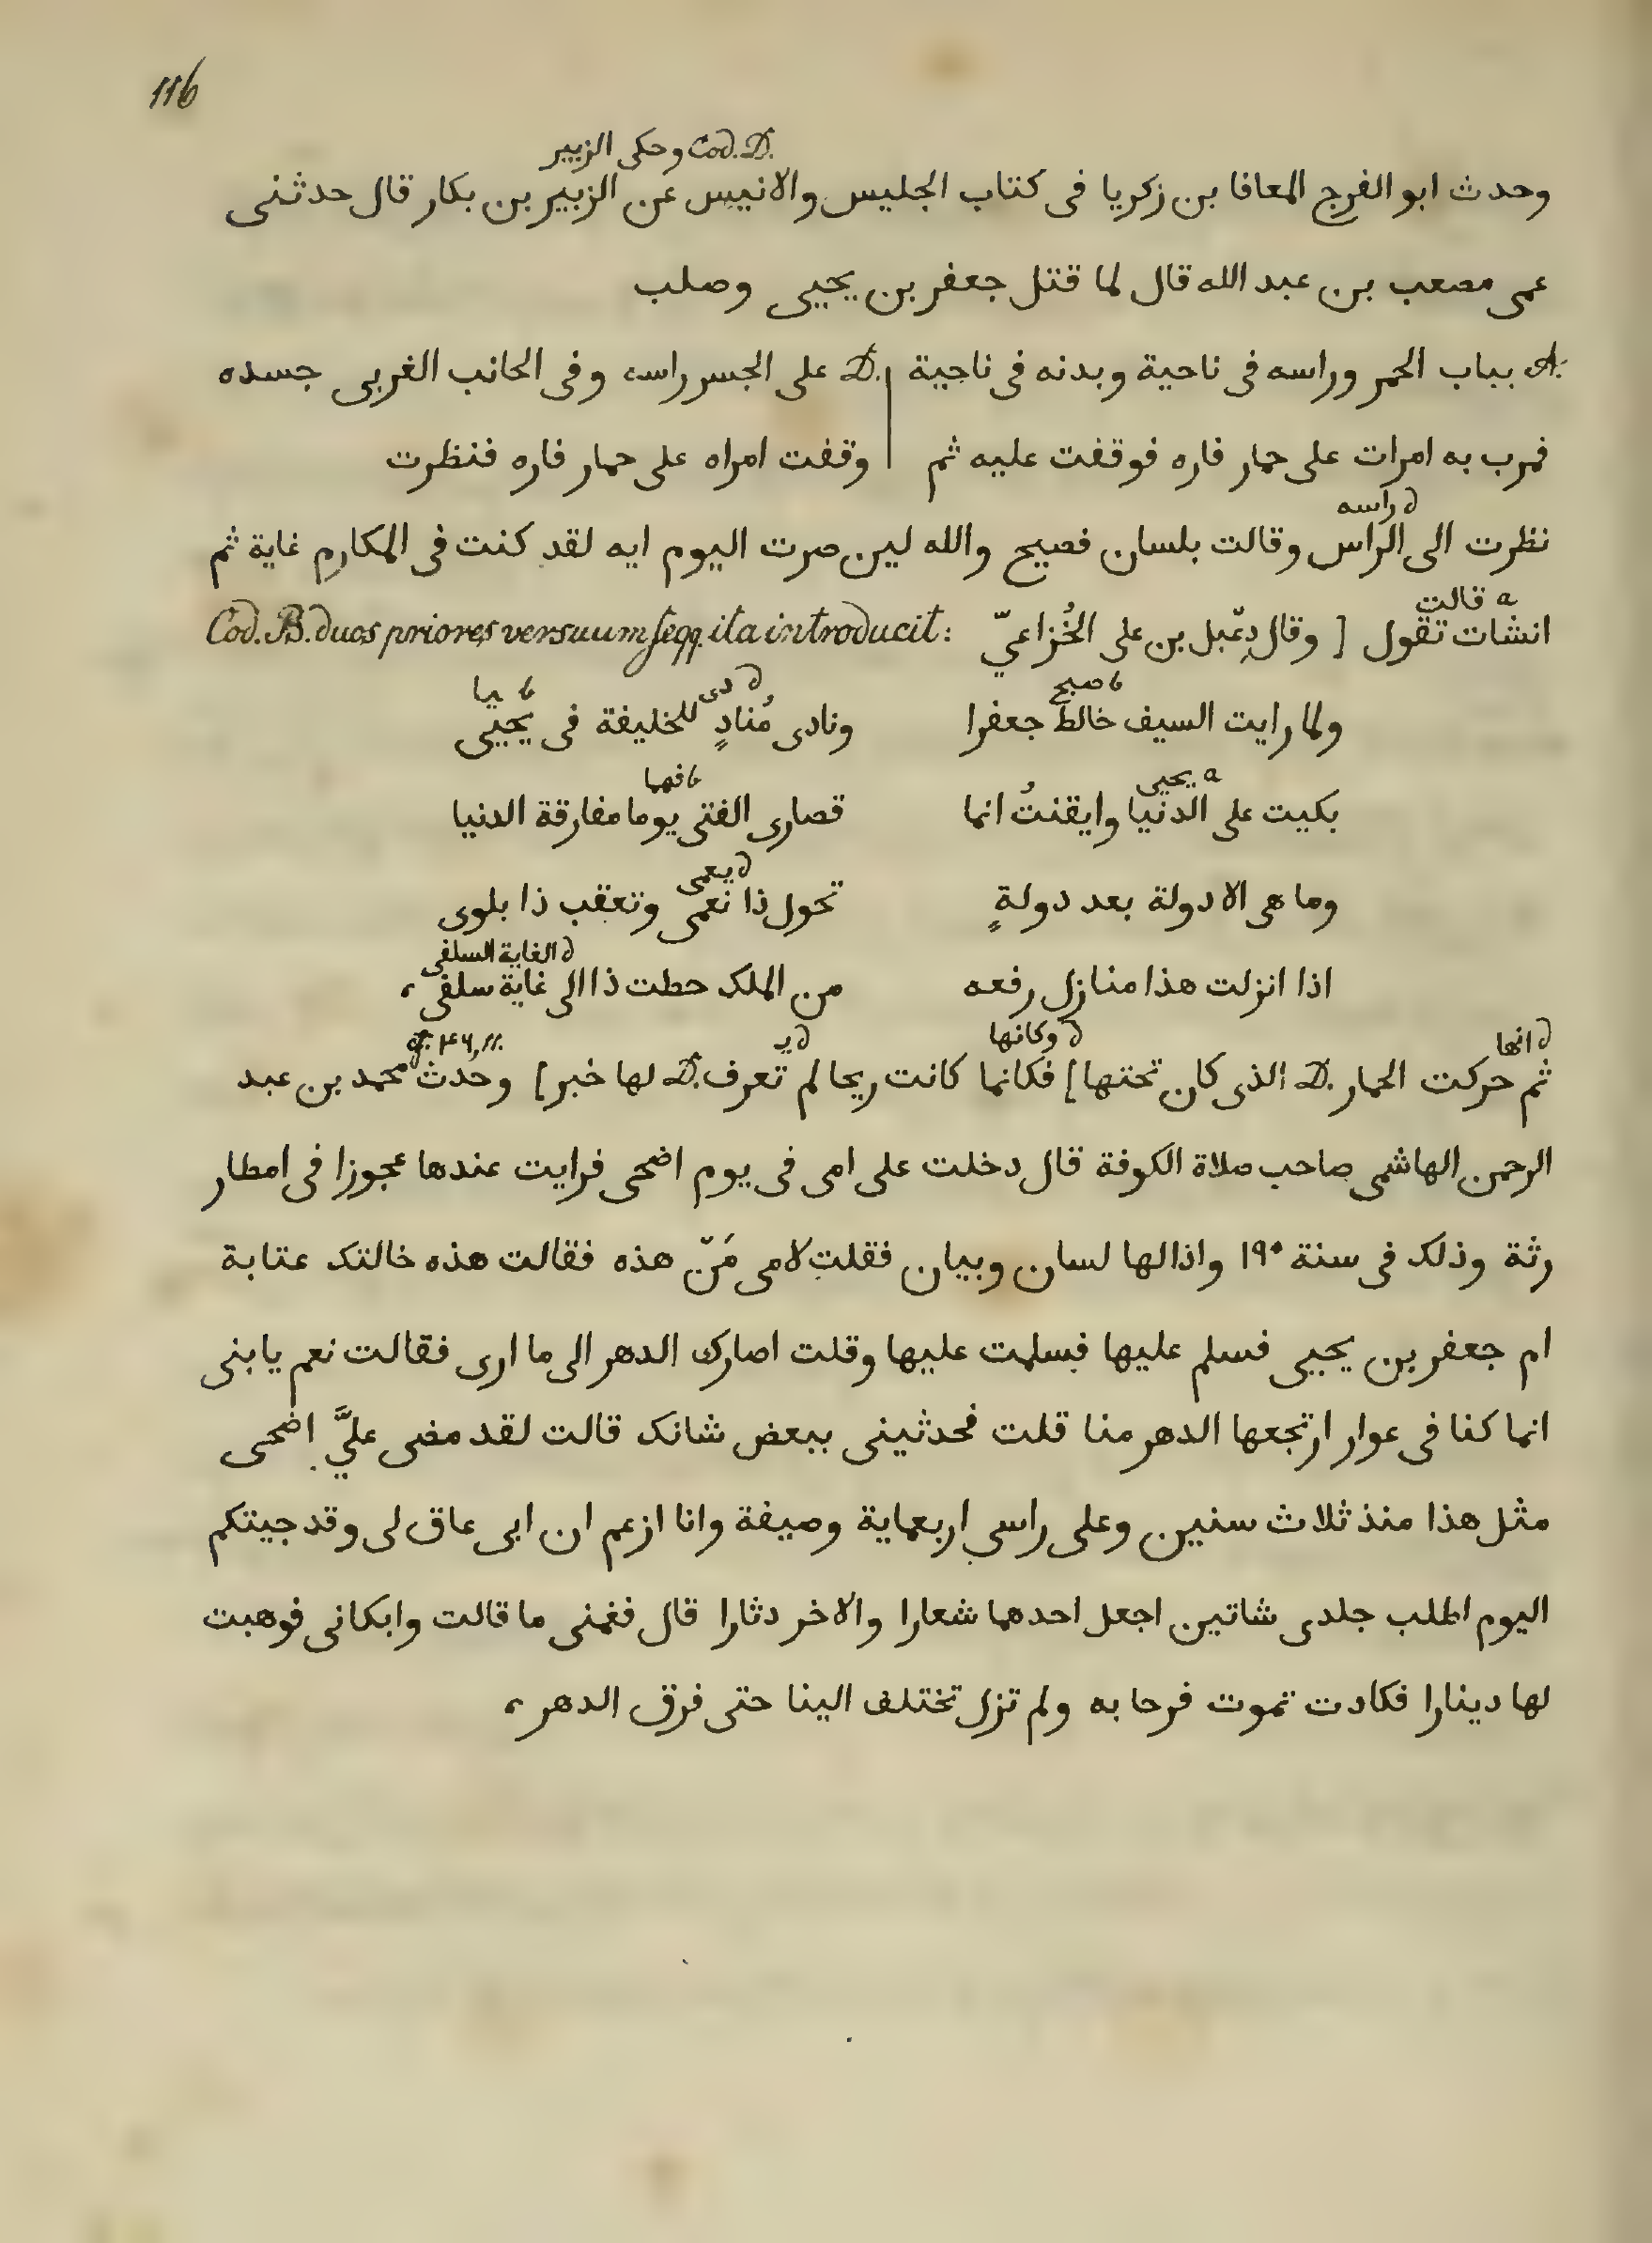 116
Cod. D. وحكى الزبير
وحدث ابو الفرج المعافا بن زكريا فى كتاب الجليس والانيس عن الزبير بن بكار قال حدثنى
عمى مصعب بن عبد الله قال لما قتل جعفر بن يحيى وصلب
A. بباب الحمر وراسه فى ناحية وبدنه فى ناحية | D. على الجسر راسه وفى الحانب الغربى جسده
فمرب به امرات على حمار فاره فوقفت عليه ثم | وقفت امراه على حمار فاره فنظرت
d راسه
نظرت الى الراس وقالت بلسان فصيح والله لين صرت اليوم ايه لقد كنت فى المكارم غاية ثم
a قالت
انشات تقول [ وقال دِعْبل بن على الخُزاعيّ Cod. B. duos priores versuum seqq. ita introducit:
b صبح d دى b يا
ولما رايت السيف خالط جعفرا ونادى مُنادٍ للخليفة فى يحيى
a يحيى b فهما
بكيت على الدنيا وايقنتُ انما قصارى الفتى يوما مفارقة الدنيا
d يعمى
وما هى الا دولة بعد دولةٍ تحول ذا نعمى وتعقب ذا بلوى
d الغاية السلفى
اذا انزلت هذا منازل رفعه من الملك حطت ذا الى غاية سلفى،
d انها d وكانها d يـ cf. ٢٤٦, ١١.
ثم حركت الحمار D. الذى كان تحتها] فكانما كانت ريحا لم تعرف D. لها خبر] وحدث محمد بن عبد
الرحمن الهاشمى صاحب صلاة الكوفة قال دخلت على امى فى يوم اضحى فرايت عندها عجوزا فى امطار
رثة وذلك فى سنة ١٩٠ واذا لها لسان وبيان فقلت لامى مَنْ هذه فقالت هذه خالتك عتابة
ام جعفر بن يحيى فسلم عليها فسلمت عليها وقلت اصارك الدهر الى ما ارى فقالت نعم يابنى
انما كنا فى عوار ارتجعها الدهر منا قلت فحدثينى ببعض شانك قالت لقد مضى عليَّ اضحى
مثل هذا منذ ثلاث سنين وعلى راسى اربعماية وصيفة وانا ازعم ان ابى عاق لى وقد جيتكم
اليوم اطلب جلدى شاتين اجعل احدهما شعارا والاخر دثارا قال فغمنى ما قالت وابكانى فوهبت
لها دينارا فكادت تموت فرحا به ولم تزل تختلف الينا حتى فرق الدهر،